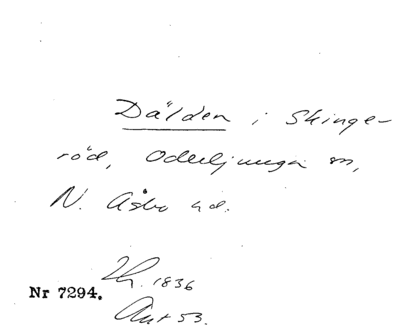 Dälden i Skinge-
röd, Oderljunga sn,
N. Åsbo hd.
1836
Nr 7294.
Ant 53.